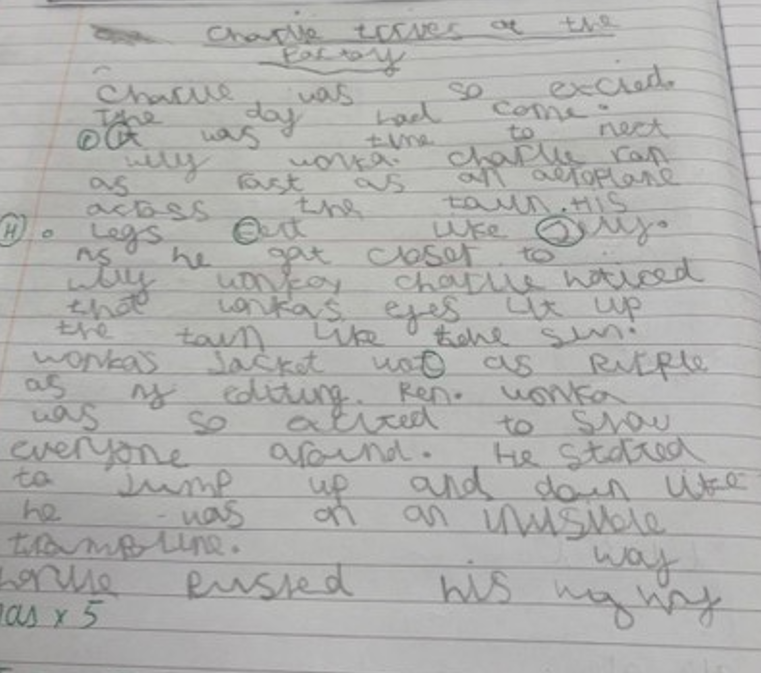 Charlie arrives at the
Factory
Charlie was so excied.
The day had come.
It was time to meet
willy wonka. Charlie ran
as fast as an aeroplane
across the town. His
H . legs felt like Jelly.
As he got closer to
willy wonka, charlie noticed
that wonkas eyes lit up
the town like the sun.
wonkas Jacket was as Purple
as my editing Pen. wonka
was so excited to show
everyone around. He started
to Jump up and down like
he was on an invisible
trampoline.
way
Pushed his way
as x 5